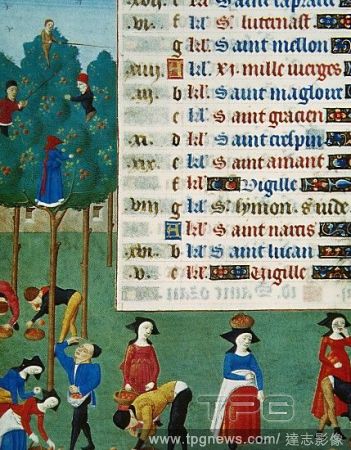 g Saint mellon
xiiii A kł xi. mille uierges
iii b kł S maglour
c kł Saint gracien
xi d kł Saint crespin
xix e kł Saint amant
f kł Vigille
viii g kł S. symon. S. iude
A kł Saint narcis
xvi b kł Saint lucan
v c kł Vigille
TPG
www.tpgnews.com/ 達志影像